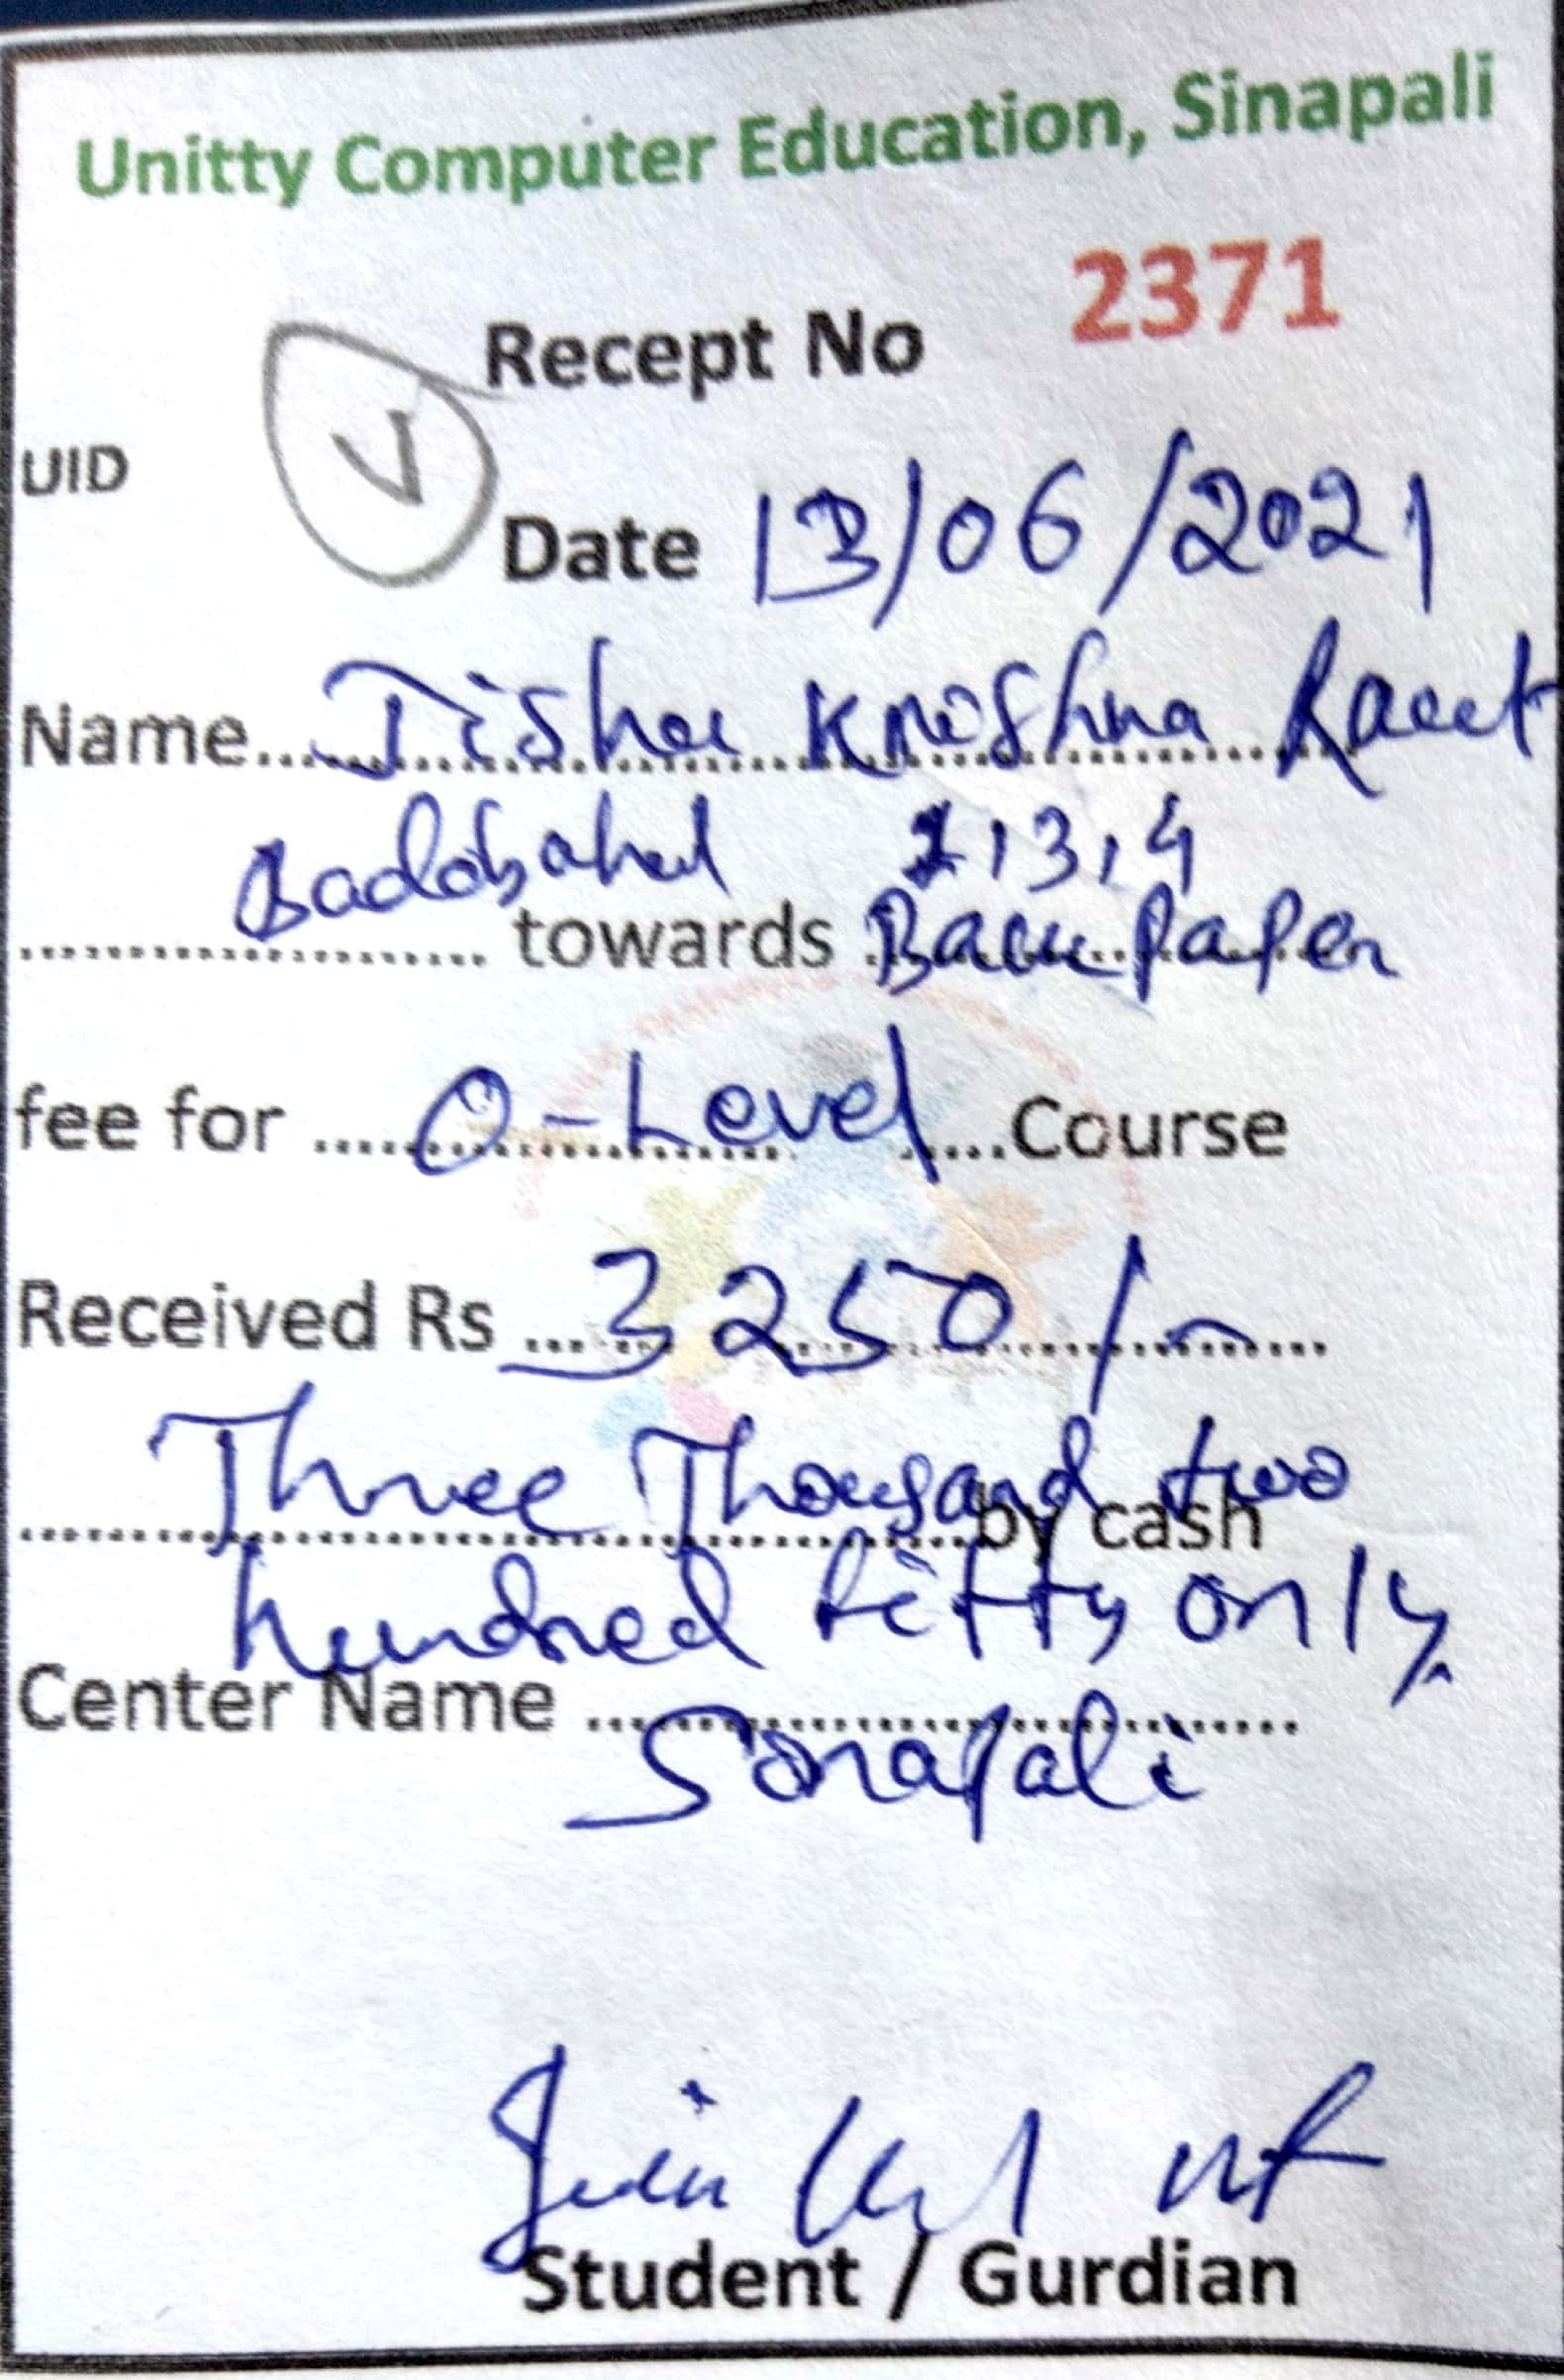 Unitty Computer Education, Sinapali
Recept No 2371
UID
Date 13/06/2021
Name Jishu Krishna Raut
Badobahal 1,3,4
towards Back Paper
fee for O-Level Course
Received Rs 3250/-
Three Thousand two
by cash
hundred fifty only
Center Name
Sinapali
Student / Gurdian